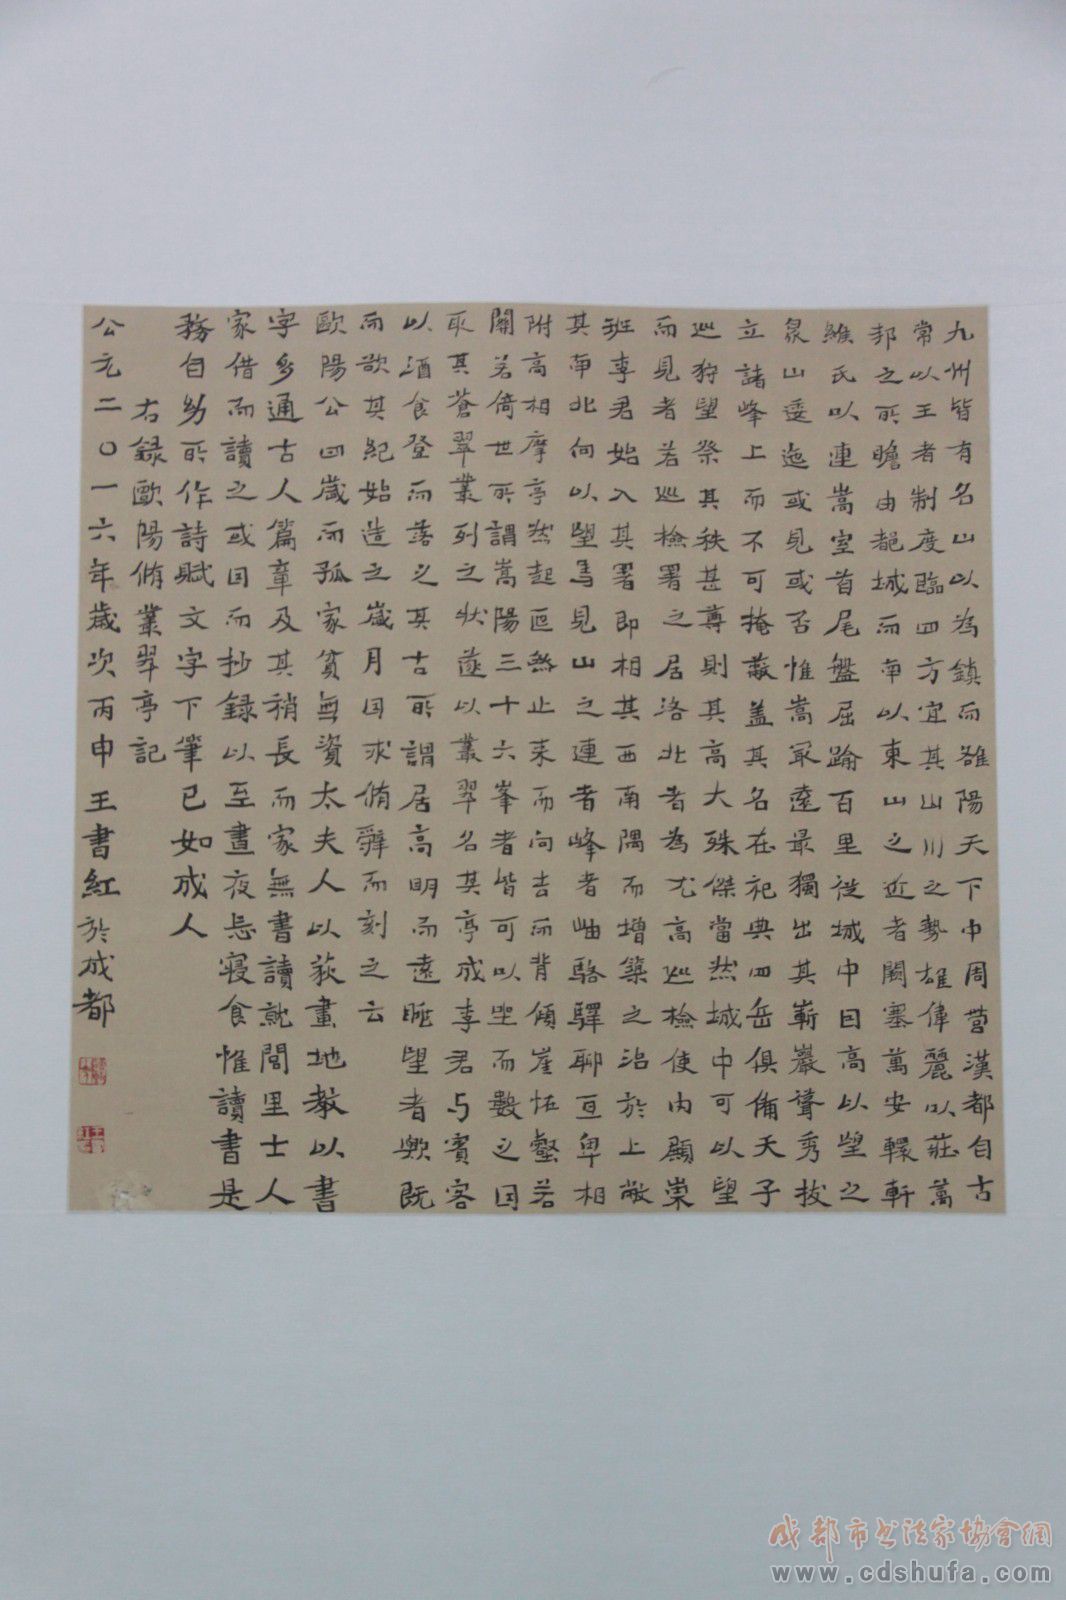 九州皆有名山以為鎮而雒陽天下中周營漢都自古
常以王者制度臨四方宜其山川之勢雄偉麗以莊萬
邦之所瞻由都城而南以東山之近者闕塞萬安轘轅
緱氏以連嵩室首尾盤屈踰百里從城中因高以望之
眾山逶迤或見或否惟嵩最遠最獨出其嶄巖聳秀拔
立諸峰上而不可掩蔽蓋其名在祀典四岳俱備天子
巡狩望祭其秩甚尊則其高大殊傑當然城中可以望
而見者若巡檢署之居洛北者為尤高巡檢使內殿崇
班李君始入其署即相其西南隅而增築之治於上敞
其南北向以望焉見山之連者峰者岫駱驛聊亘卑相
附高相摩亭然起崒然止来而向去而背傾崖怪壑若
關若倚世所謂嵩陽三十六峯者皆可以坐而數之因
取其蒼翠叢列之狀遂以叢翠名其亭成李君与賓客
以酒食登而落之其古所謂居高明而遠眺望者歟既
而欲其紀始造之歲月因求脩辭而刻之云
歐陽公四歲而孤家貧無資太夫人以荻畫地教以書
字多通古人篇章及其稍長而家無書讀就閭里士人
家借而讀之或因而抄録以至晝夜忘寝食惟讀書是
務自幼所作詩賦文字下筆已如成人
右録歐陽脩叢翠亭記
公元二〇一六年歲次丙申王書紅於成都
成都市书法家協會網
www.cdshufa.com